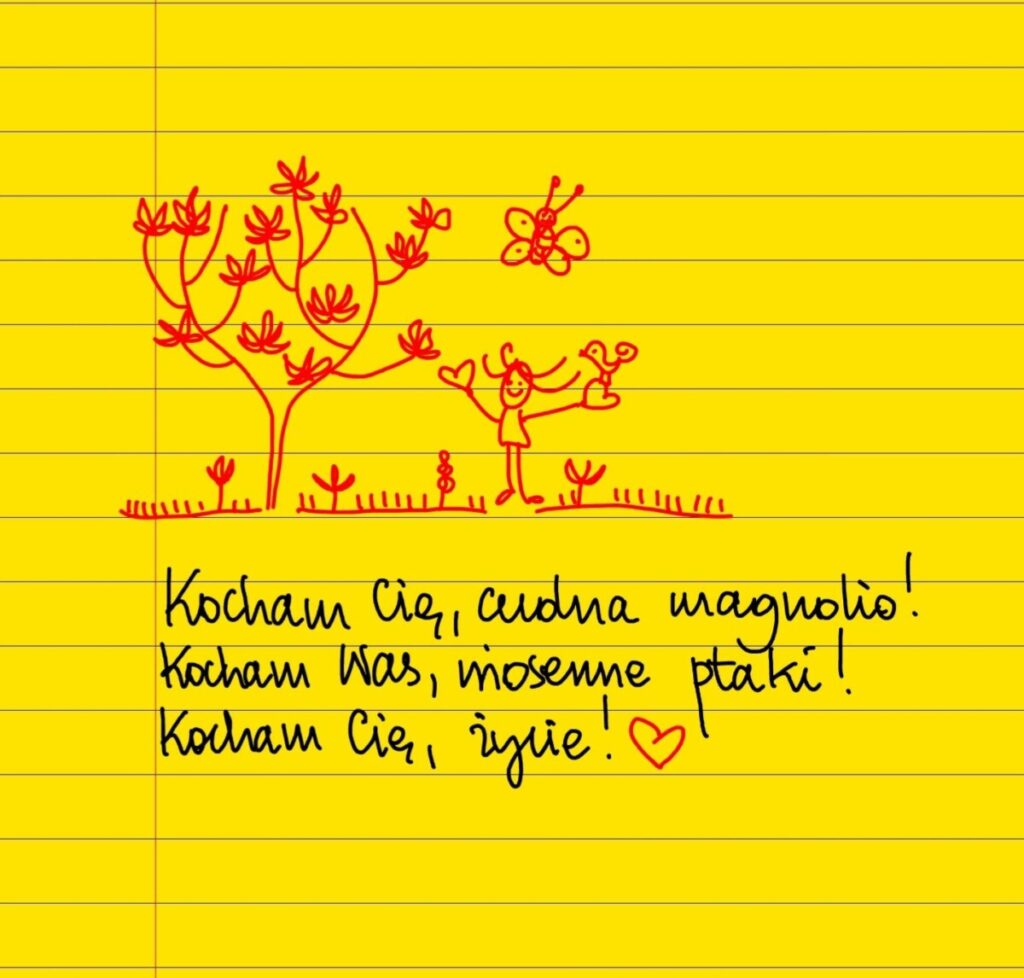 Kocham Cię, cudna magnolio!
Kocham Was, wiosenne ptaki!
Kocham Cię, życie!